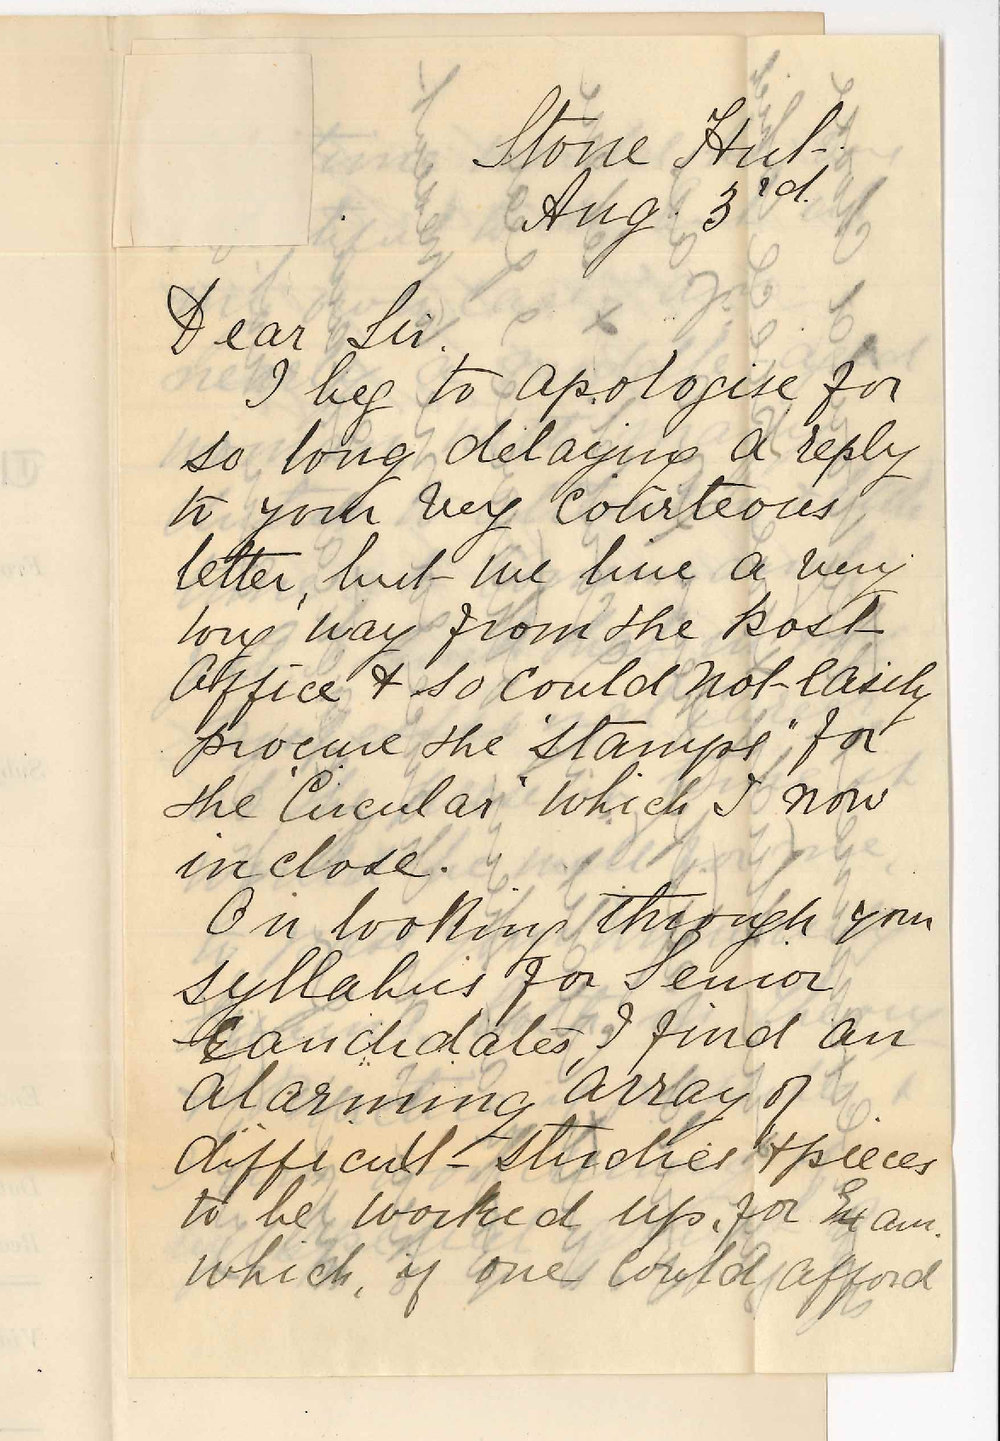 Stone Hut.
Aug. 3rd.
Dear Sir.
I beg to apologise for
so long delaying a reply
to your very courteous
letter, but we live a very
long way from the Post
Office & so could not easily
procure the "stamps" for
the "Circular" which I now
inclose.
On looking through your
syllabus for Senior
Candidates, I find an
alarming array of
difficult "studies" & pieces
to be worked up, for Exam.
which, if one could afford